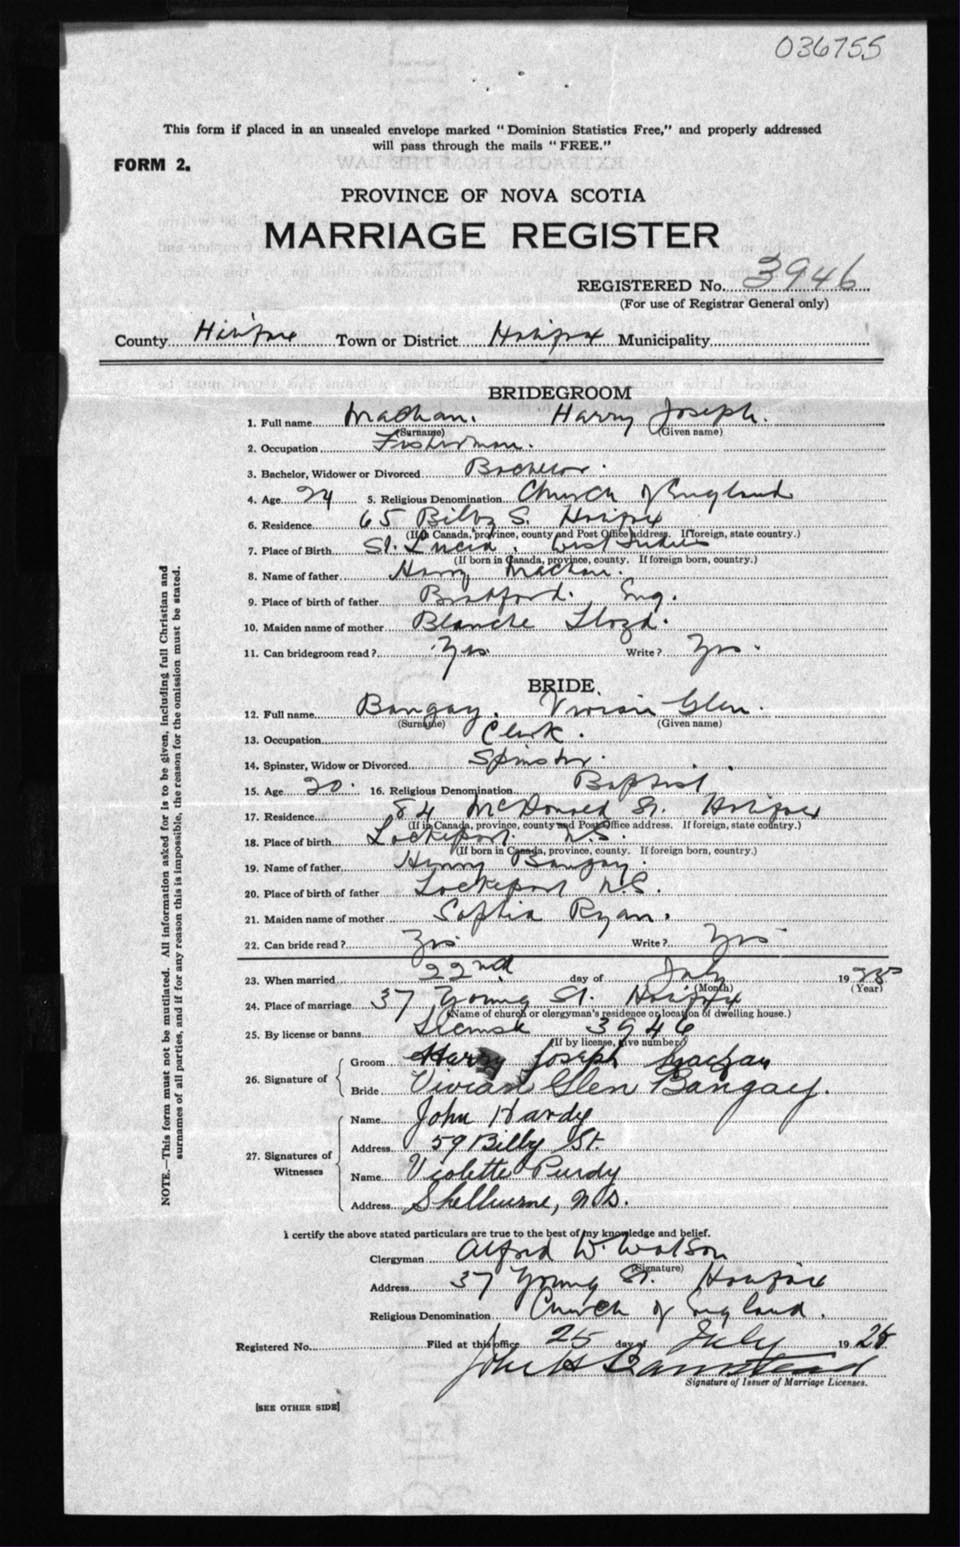 036755
This form if placed in an unsealed envelope marked "Dominion Statistics Free," and properly addressed
will pass through the mails "FREE."
FORM 2.
PROVINCE OF NOVA SCOTIA
MARRIAGE REGISTER
REGISTERED No. 3946
(For use of Registrar General only)
County Halifax Town or District Halifax Municipality
BRIDEGROOM
1. Full name Machan. Harry Joseph.
(Surname) (Given name)
2. Occupation Fisherman.
3. Bachelor, Widower or Divorced Bachelor.
4. Age 24 5. Religious Denomination Church of England
6. Residence 65 Bilby S. Halifax
(If in Canada, province, county and Post Office address. If foreign, state country.)
7. Place of Birth St. Lucia, West Indies
(If born in Canada, province, county. If foreign born, country.)
8. Name of father Harry Machan.
9. Place of birth of father Bradford. Eng.
10. Maiden name of mother Blanche Lloyd.
11. Can bridegroom read? Yes Write? Yes.
BRIDE.
12. Full name Bangay. Vivian Glen.
(Surname) (Given name)
13. Occupation Clerk.
14. Spinster, Widow or Divorced Spinster.
15. Age 20. 16. Religious Denomination Baptist.
17. Residence 84 McDonald St. Halifax
(If in Canada, province, county and Post Office address. If foreign, state country.)
18. Place of birth Lockeport N.S.
(If born in Canada, province, county. If foreign born, country.)
19. Name of father Henry Bangay.
20. Place of birth of father Lockeport N.S.
21. Maiden name of mother Sophia Ryan.
22. Can bride read? Yes Write? Yes
23. When married 22nd day of July 1925
(Month) (Year)
24. Place of marriage 37 Young St. Halifax
(Name of church or clergyman's residence or location of dwelling house.)
25. By license or banns License 3946
(If by license, give number)
26. Signature of
Groom Harry Joseph Machan
Bride Vivian Glen Bangay.
27. Signatures of Witnesses
Name John Hardy
Address 59 Bilby St.
Name Violette Purdy
Address Shelburne, N.S.
I certify the above stated particulars are true to the best of my knowledge and belief.
Clergyman Alfred W. Watson
(Signature)
Address 37 Young St. Halifax
Religious Denomination Church of England.
Registered No. Filed at this office 25 day of July 1925
John H
Signature of Issuer of Marriage Licenses.
[SEE OTHER SIDE]
NOTE.—This form must not be mutilated. All information asked for is to be given, including full Christian and
surnames of all parties, and if for any reason this is impossible, the reason for the omission must be stated.